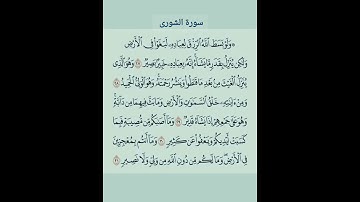 سورة الشورى
﴿وَلَوۡ بَسَطَ ٱللَّهُ ٱلرِّزۡقَ لِعِبَادِهِۦ لَبَغَوۡاْ فِي ٱلۡأَرۡضِ
وَلَٰكِن يُنَزِّلُ بِقَدَرٖ مَّا يَشَآءُۚ إِنَّهُۥ بِعِبَادِهِۦ خَبِيرُۢ بَصِيرٞ ٢٧ وَهُوَ ٱلَّذِي
يُنَزِّلُ ٱلۡغَيۡثَ مِنۢ بَعۡدِ مَا قَنَطُواْ وَيَنشُرُ رَحۡمَتَهُۥۚ وَهُوَ ٱلۡوَلِيُّ ٱلۡحَمِيدُ ٢٨
وَمِنۡ ءَايَٰتِهِۦ خَلۡقُ ٱلسَّمَٰوَٰتِ وَٱلۡأَرۡضِ وَمَا بَثَّ فِيهِمَا مِن دَآبَّةٖۚ
وَهُوَ عَلَىٰ جَمۡعِهِمۡ إِذَا يَشَآءُ قَدِيرٞ ٢٩ وَمَآ أَصَٰبَكُم مِّن مُّصِيبَةٖ فَبِمَا
كَسَبَتۡ أَيۡدِيكُمۡ وَيَعۡفُواْ عَن كَثِيرٖ ٣٠ وَمَآ أَنتُم بِمُعۡجِزِينَ
فِي ٱلۡأَرۡضِۖ وَمَا لَكُم مِّن دُونِ ٱللَّهِ مِن وَلِيّٖ وَلَا نَصِيرٖ ٣١